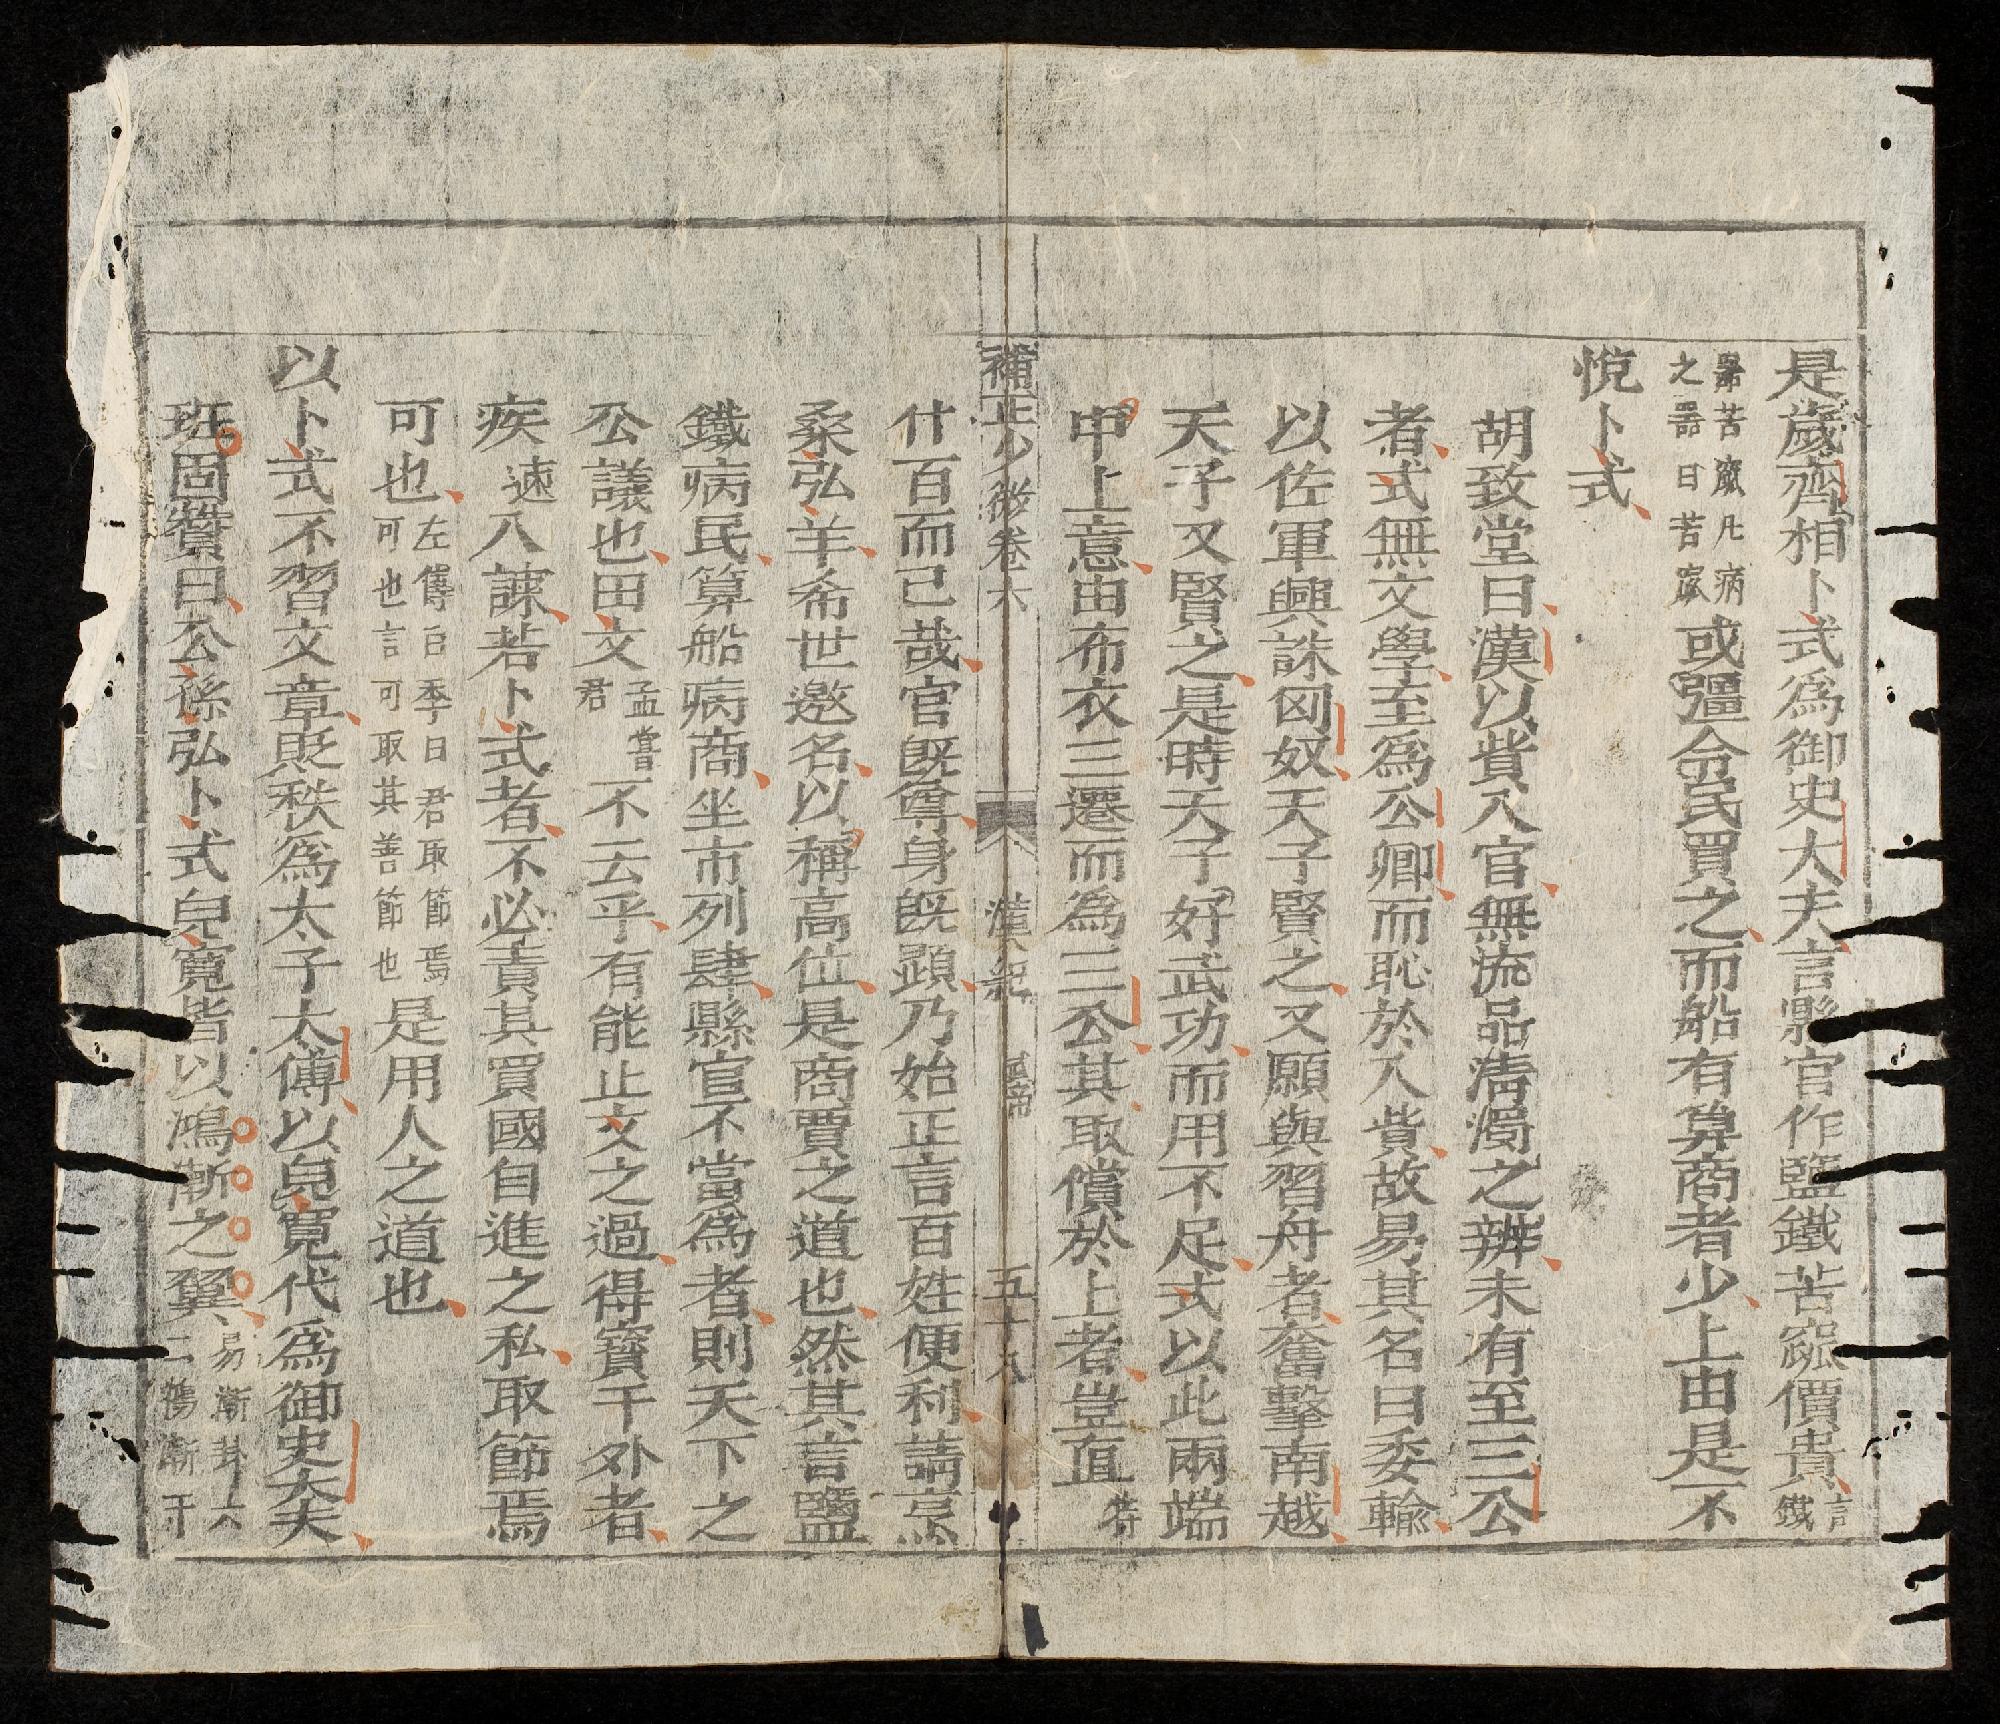 是歲齊相卜式為御史大夫言縣官作鹽鐵苦窳價貴言鐵
器苦窳凡病之器曰苦窳或彊令民買之而船有算商者少上由是不
悅卜式
胡致堂曰漢以貲入官無流品清濁之辨未有至三公
者式無文學至為公卿而恥於入貲故易其名曰委輸
以佐軍興誅匈奴天子賢之又願與習舟者奮擊南越
天子又賢之是時天子好武功而用不足式以此兩端
中上意由布衣三遷而為三公其取償於上者豈直特
補正少微卷六 漢紀 武帝 五十八
什百而已哉官既尊身既顯乃始正言百姓便利請烹
桑弘羊希世邀名以稱高位是商賈之道也然其言鹽
鐵病民算船病商坐市列肆縣官不當為者則天下之
公議也田文孟嘗君不云乎有能止文之過得寶于外者
疾速入諫若卜式者不必責其買國自進之私取節焉
可也左傳臼季曰君取節焉可也言可取其善節也是用人之道也
以卜式不習文章貶秩為太子太傅以兒寬代為御史大夫
班固贊曰公孫弘卜式兒寬皆以鴻漸之翼易漸卦六二鴻漸于